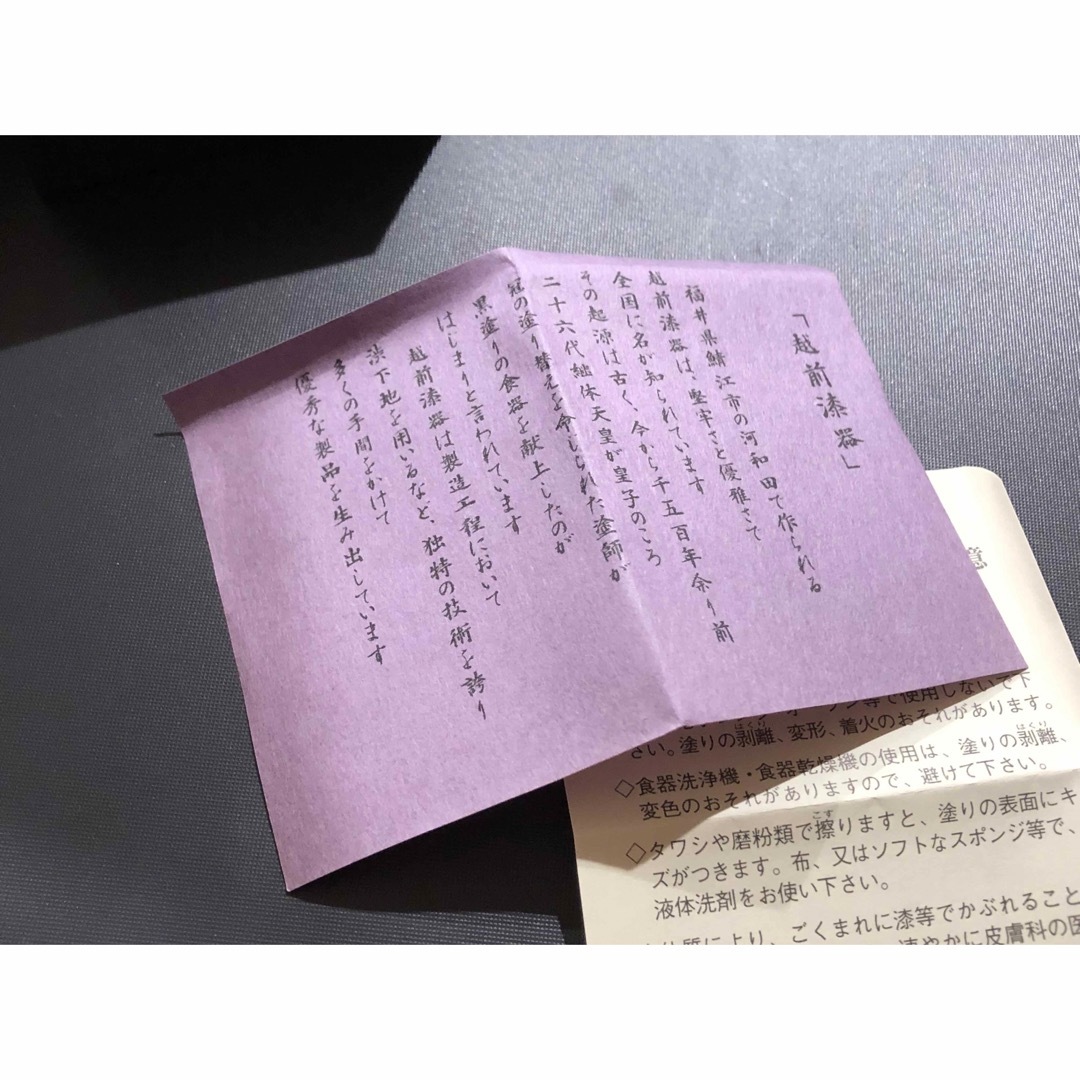 「越前漆器」
福井県鯖江市の河和田で作られる
越前漆器は、堅牢さと優雅さで
全国に名が知られています
その起源は古く、今から千五百年余り前
二十六代継体天皇が皇子のころ
冠の塗り替えを命じられた塗師が
黒塗りの食器を献上したのが
はじまりと言われています
越前漆器は製造工程において
渋下地を用いるなど、独特の技術を誇り
多くの手間をかけて
優秀な製品を生み出しています
意
等で使用しないで下
さい。塗りの剥離、変形、着火のおそれがあります。
◇食器洗浄機・食器乾燥機の使用は、塗りの剥離、
変色のおそれがありますので、避けて下さい。
◇タワシや磨粉類で擦りますと、塗りの表面にキ
ズがつきます。布、又はソフトなスポンジ等で、
液体洗剤をお使い下さい。
により、ごくまれに漆等でかぶれること
やかに皮膚科の医